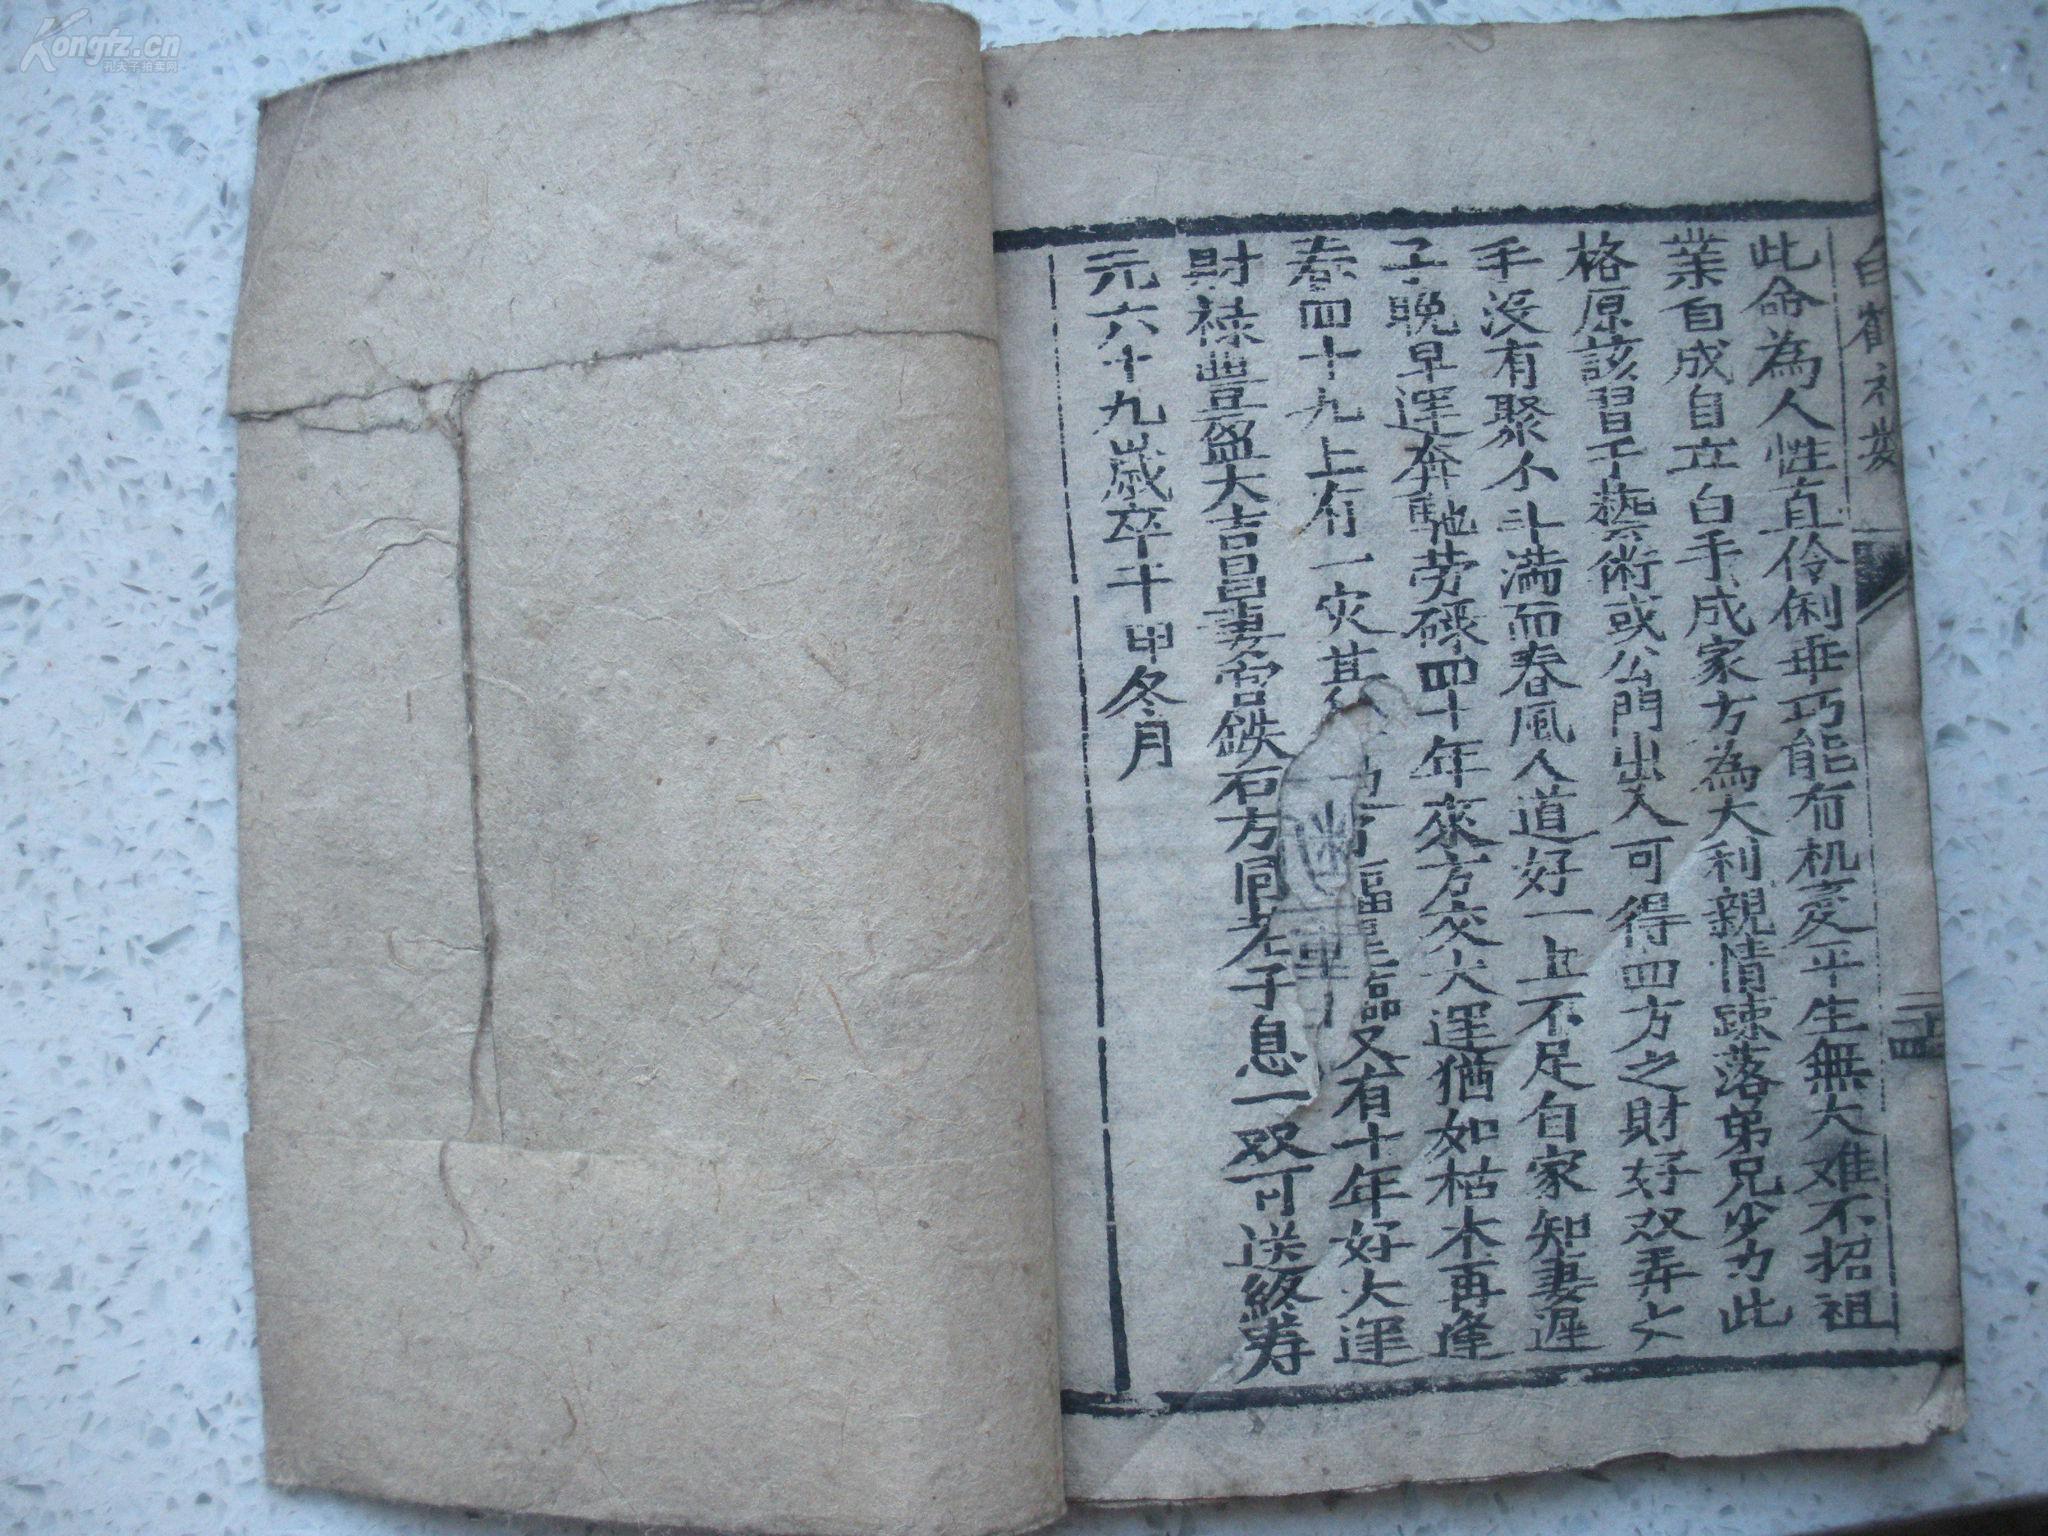 Kongfz.cn
孔夫子拍卖网
白鶴神数
二十四
此命為人性直伶俐乖巧能有机变平生無大难不招祖
業自成自立白手成家方為大利親情疎落弟兄少力此
格原該習手藝術或公門出入可得四方之財好双弄文
手没有聚小斗满而春風人道好一上不足自家知妻遲
子晚早運奔馳劳碌四十年來方交大運猶如枯木再逢
春四十九上有一灾其 臨又有十年好大運
財禄豊盈大吉昌妻宫鉄石方同老子息一双可送終寿
元六十九歳卒于甲冬月